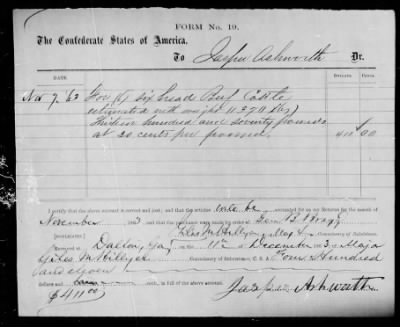 FORM No. 19.
The Confederate States of America,
To Jasper Ashworth Dr.
DATE. DOLLARS CENTS
Nov 7 63 For (6) six head Beef Cattle
estimated nett weight
hundred and seventy pounds
at 30 cents per pound 411 00
I certify that the above account is correct and just; and that the articles to be accounted for on my Returns for the month of
November 1863 Genl B Bragg
Giles M Hillyer Maj & Commissary of Subsistence.
Received at Dalton, Ga, 11th of December 1863, of Major
Giles M Hillyer Commissary of Subsistence, C. S. A. Four Hundred
and eleven
dollars and cents, in full of the above account.
$411.00 Jasper Ashworth